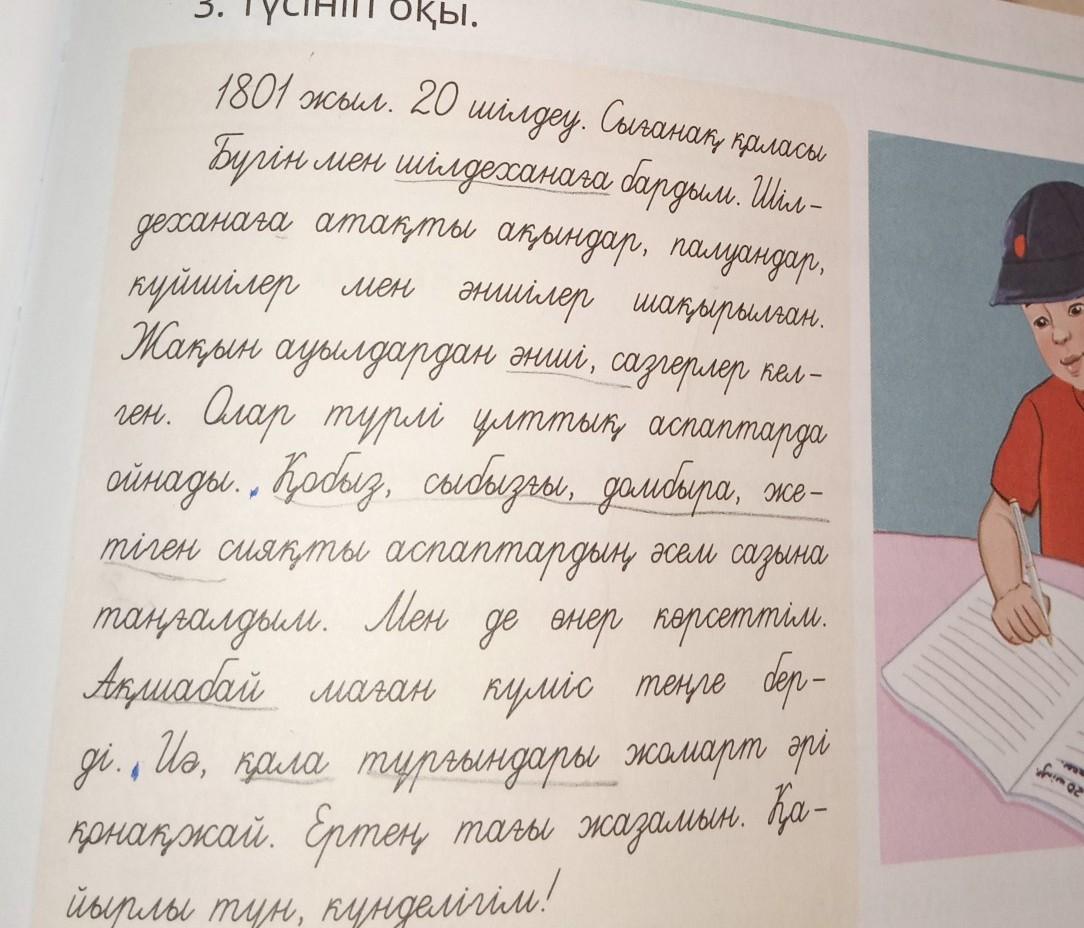 3. Түсініп оқы.
1801 жыл. 20 шілдеу. Сығанақ қаласы
Бүгін мен шілдеханаға бардым. Шіл-
деханаға атақты ақындар, палуандар,
күйшілер мен әншілер шақырылған.
Жақын ауылдардан әнші, сазгерлер кел-
ген. Олар түрлі ұлттық аспаптарда
ойнады. Қобыз, сыбызғы, домбыра, же-
тіген сияқты аспаптардың әсем сазына
таңғалдым. Мен де өнер көрсеттім.
Ақшабай маған күміс теңге бер-
ді. Иә, қала тұрғындары жомарт әрі
қонақжай. Ертең тағы жазамын. Қа-
йырлы түн, күнделігім!